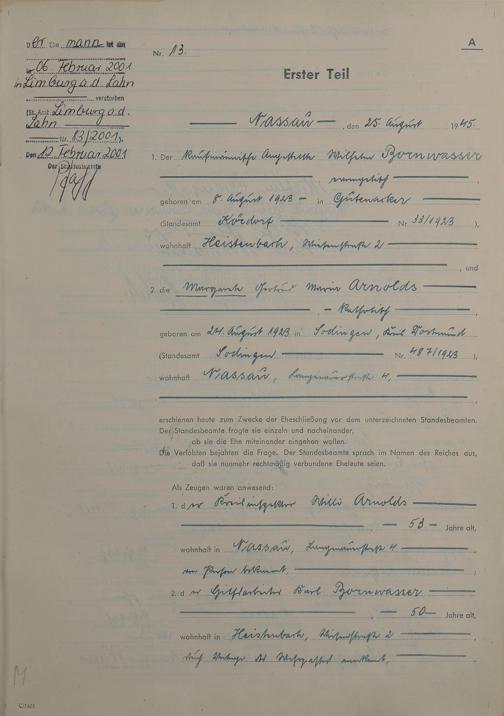 Der Ehemann ist am
06 Februar 2001
in Limburg a.d. Lahn
verstorben
St. Amt Limburg a.d.
Lahn
Nr. 83/2001
Den 12 Februar 2001
Der Standesbeamte
A
Nr. 13.
Erster Teil
Nassau, den 25. August 1945.
1. Der kaufmännische Angestellte Wilhelm Bornwasser
evangelisch
geboren am 8. August 1923 in Gutenacker
(Standesamt Kördorf Nr. 33/1923),
wohnhaft Heistenbach, Wiesenstraße 2
, und
2. die Margarete Gertrud Maria Arnolds
- Katholisch
geboren am 24. August 1923 in Sodingen, Kreis Dortmund
(Standesamt Sodingen Nr. 487/1923),
wohnhaft Nassau, 4,
erschienen heute zum Zwecke der Eheschließung vor dem unterzeichneten Standesbeamten.
Der Standesbeamte fragte sie einzeln und nacheinander,
ob sie die Ehe miteinander eingehen wollen.
Die Verlobten bejahten die Frage. Der Standesbeamte sprach im Namen des Reiches aus,
daß sie nunmehr rechtmäßig verbundene Eheleute seien.
Als Zeugen waren anwesend:
1. der Willi Arnolds
53 Jahre alt,
wohnhaft in Nassau, 4
von Person bekannt,
2. der Hilfsarbeiter Karl Bornwasser
50 Jahre alt,
wohnhaft in Heistenbach, Wiesenstraße 2
durch Vorlage des anerkannt,
C/1421